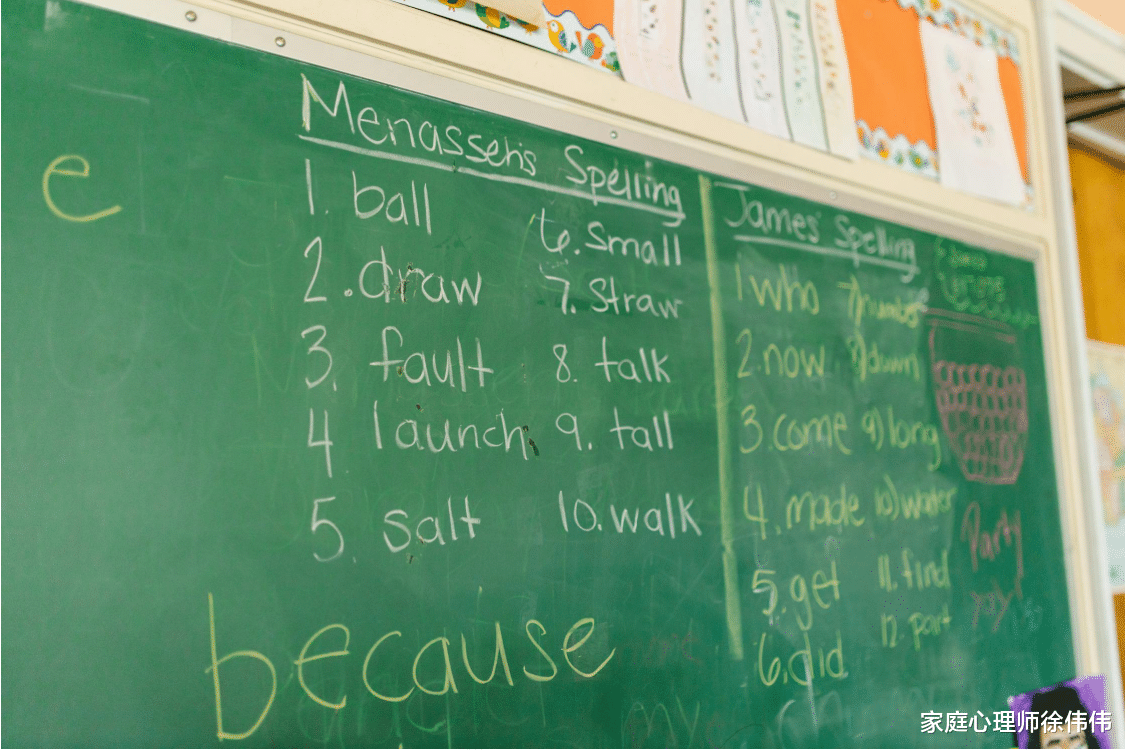 e
Menasseh's Spelling
1. ball
2. draw
3. fault
4 launch
5. salt
6. Small
7. Straw
8. talk
9. tall
10. walk
because
James' Spelling
1 who
2. now
3. come
4. made
5. get
6. did
7) number
8) down
9) long
10) water
11. find
12. part
Party
家庭心理师徐伟伟